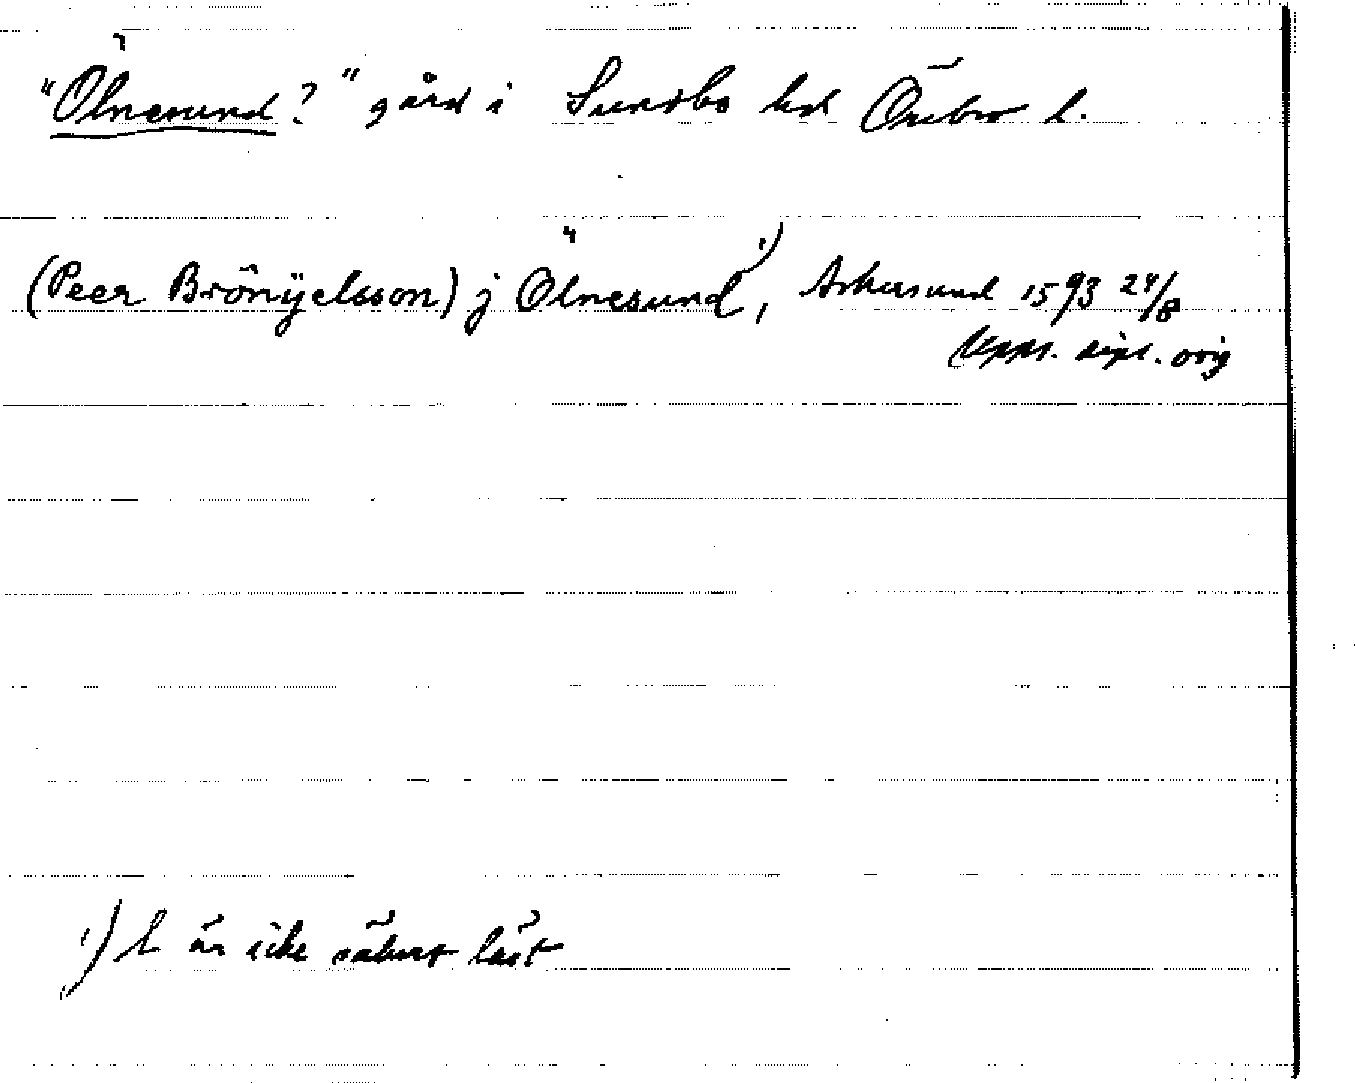 "Ölnesund?" gård i Sundbo hd Örebro l.
(Peer Brönÿelsson) j Ölnesund¹⁾, Askersund 1593 24/8
Upps. dipl. orig
¹⁾ l är icke säkert läst